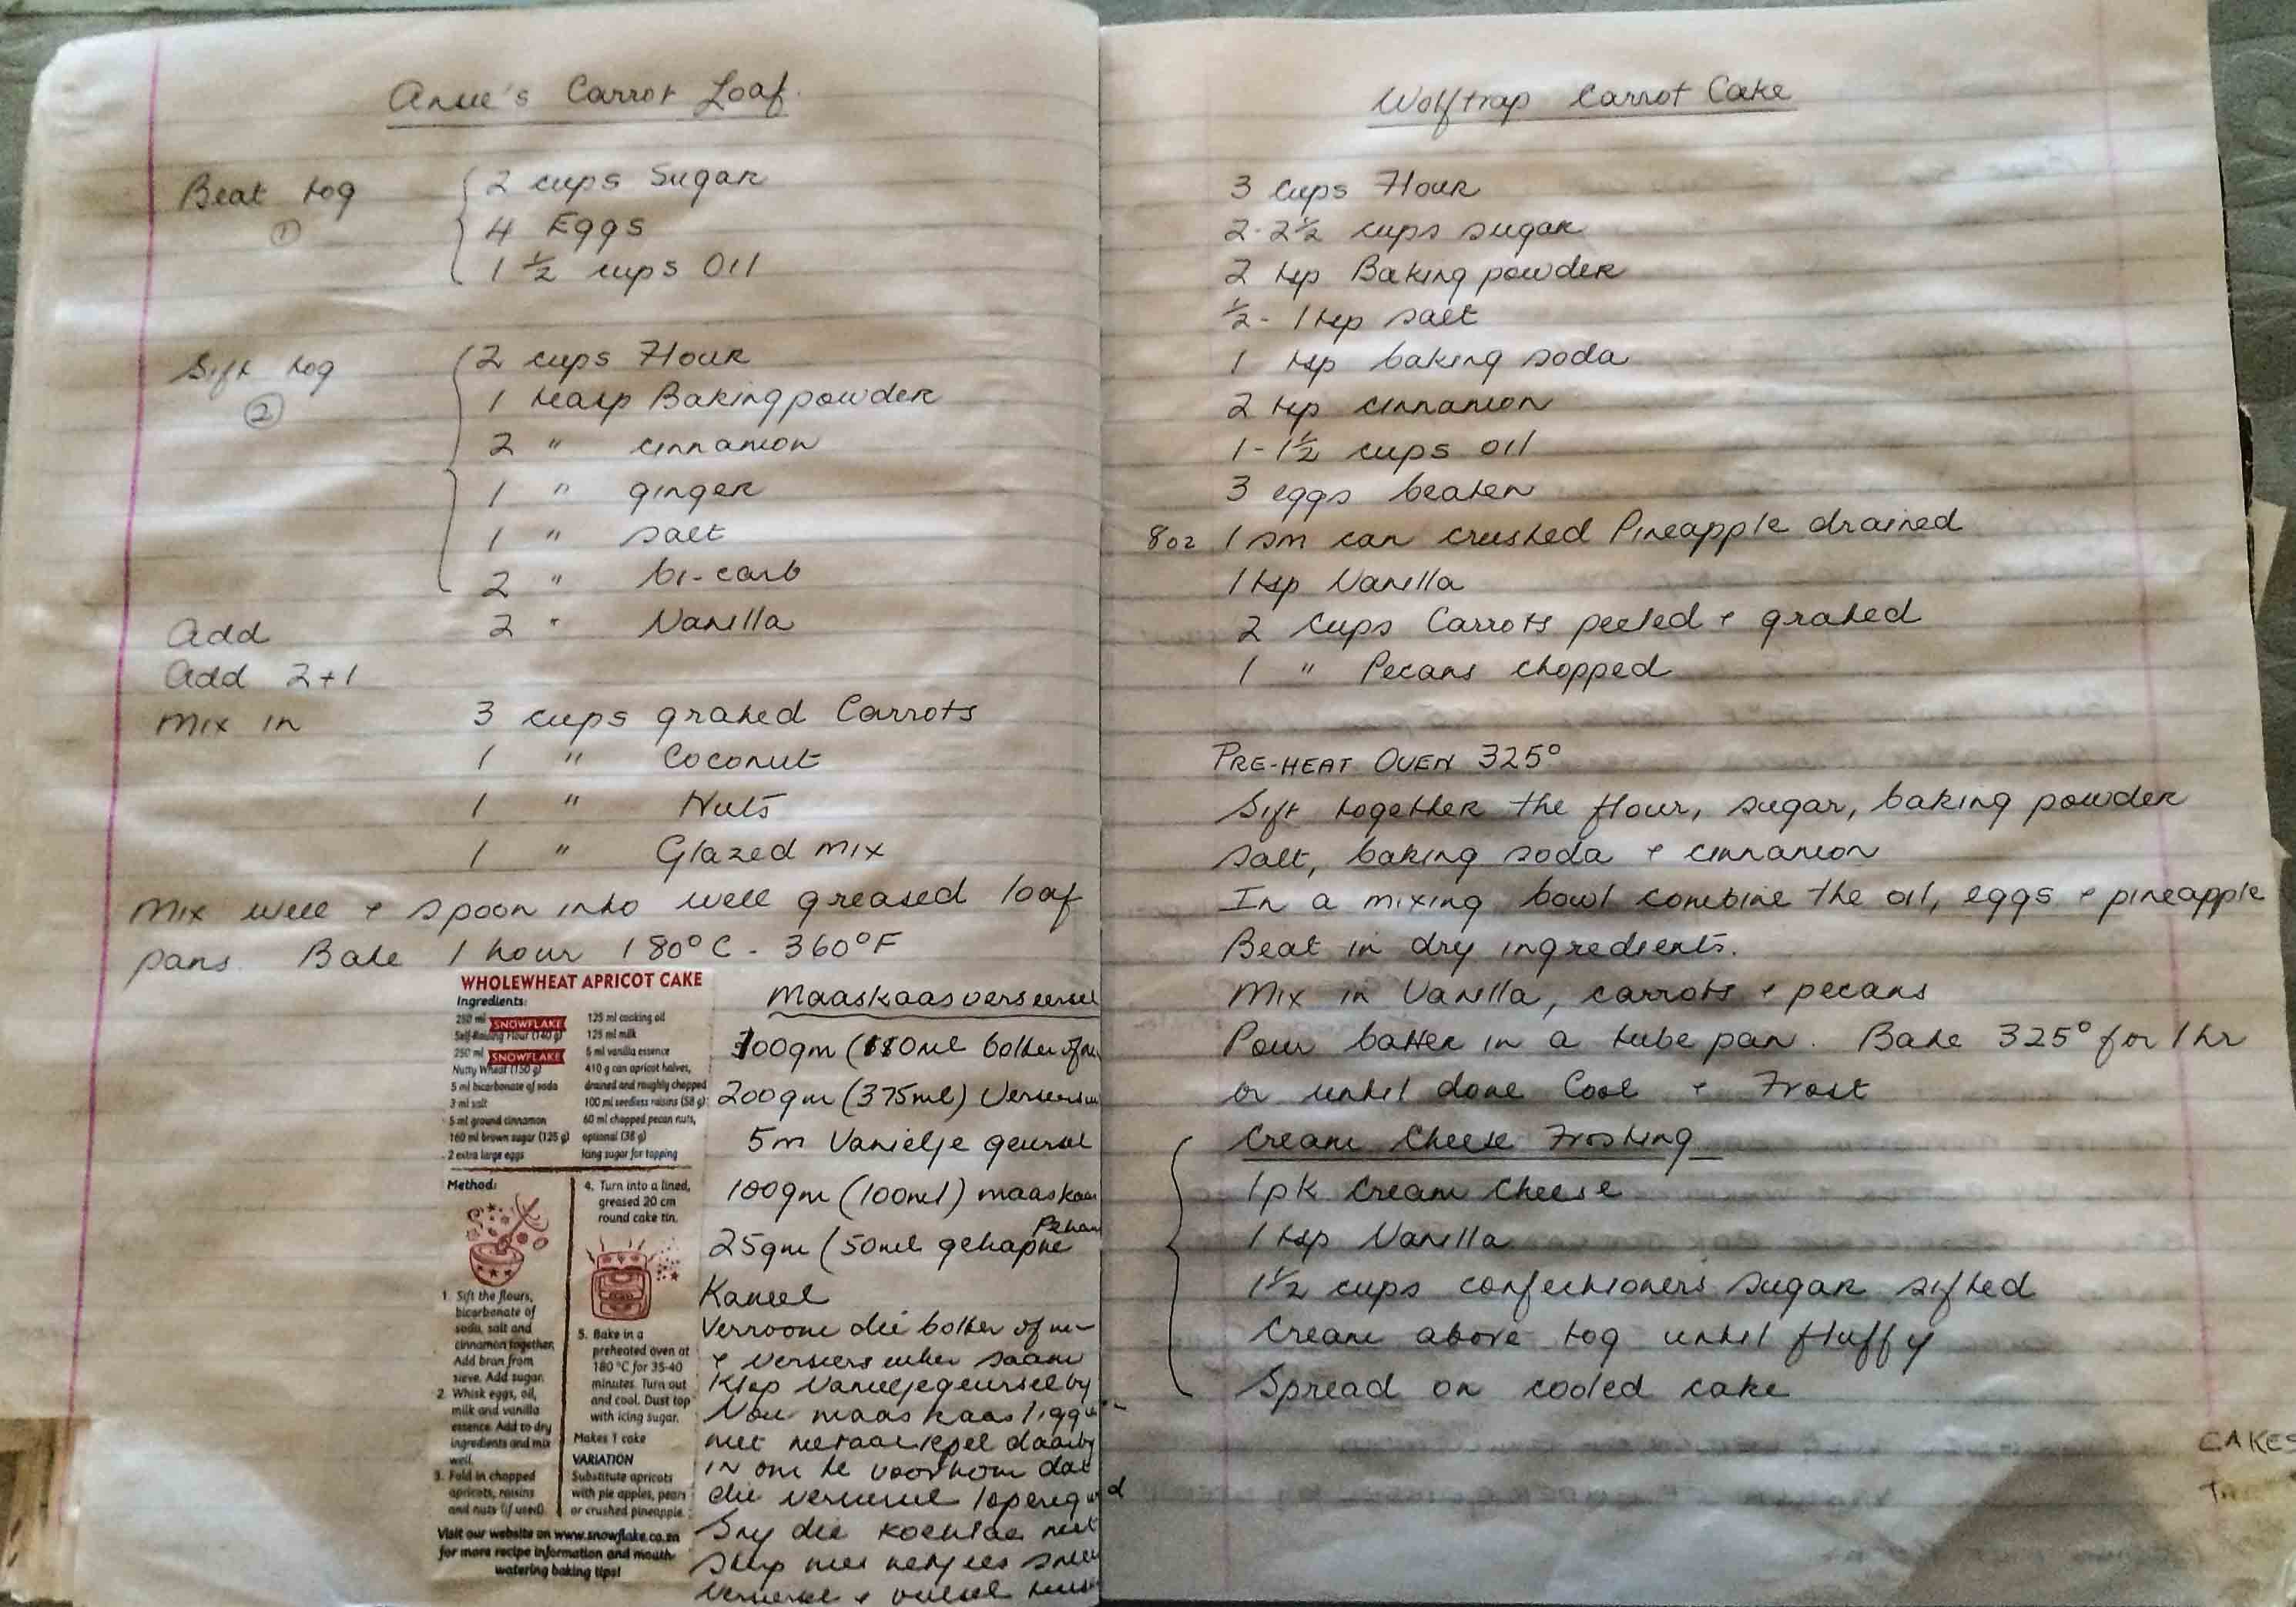 Carrot Loaf.
Beat tog { 2 cups Sugar
① 4 Eggs
1 ½ cups Oil
Sift tog { 2 cups Flour
② 1 teasp Baking powder
2 " cinnamon
1 " ginger
1 " salt
2 " bi-carb
Add 2 " Vanilla
Add 2+1
Mix in 3 cups grated Carrots
1 " Coconut
1 " Nuts
1 " Glazed mix
Mix well + spoon into well greased loaf
pans. Bake 1 hour 180°C - 360°F
WHOLEWHEAT APRICOT CAKE
Ingredients:
250 ml SNOWFLAKE
Self-Raising Flour (140 g)
250 ml SNOWFLAKE
Nutty Wheat (150 g)
5 ml bicarbonate of soda
3 ml salt
5 ml ground cinnamon
160 ml brown sugar (125 g)
2 extra large eggs
125 ml cooking oil
125 ml milk
5 ml vanilla essence
410 g can apricot halves,
drained and roughly chopped
100 ml seedless raisins (58 g)
60 ml chopped pecan nuts,
optional (38 g)
Icing sugar for topping
Method:
1. Sift the flours,
bicarbonate of
soda, salt and
cinnamon together.
Add bran from
sieve. Add sugar.
2. Whisk eggs, oil,
milk and vanilla
essence. Add to dry
ingredients and mix
well.
3. Fold in chopped
apricots, raisins
and nuts (if used).
4. Turn into a lined,
greased 20 cm
round cake tin.
5. Bake in a
preheated oven at
180 °C for 35-40
minutes. Turn out
and cool. Dust top
with icing sugar.
Makes 1 cake
VARIATION
Substitute apricots
with pie apples, pears
or crushed pineapple.
Visit our website on www.snowflake.co.za
for more recipe information and mouth-
watering baking tips!
Maaskaasversiersel
botter of
200gm (375ml)
5m Vanielje geursel
100gm (100ml) maaskaas
25gm (50ml gekapte
Kaneel
Verroom die botter of
+ versiersuiker saam
Klop Vanieljegeursel by
Vou maaskaas
met metaallepel daarby
in om te voorkom dat
die versiersel
Sny die
Wolftrap Carrot Cake
3 cups Flour
2-2½ cups sugar
2 tsp Baking powder
½ - 1 tsp salt
1 tsp baking soda
2 tsp cinnamon
1-1½ cups oil
3 eggs beaten
8oz 1 sm can crushed Pineapple drained
1 tsp Vanilla
2 cups Carrots peeled + grated
1 " Pecans chopped
PRE-HEAT OVEN 325°
Sift together the flour, sugar, baking powder
salt, baking soda + cinnamon
In a mixing bowl combine the oil, eggs + pineapple
Beat in dry ingredients.
Mix in Vanilla, carrots + pecans
Pour batter in a tube pan. Bake 325° for 1 hr
or until done Cool + Frost
Cream Cheese Frosting
1 pk Cream Cheese
1 tsp Vanilla
1½ cups confectioners sugar sifted
Cream above tog until fluffy
Spread on cooled cake
CAKES